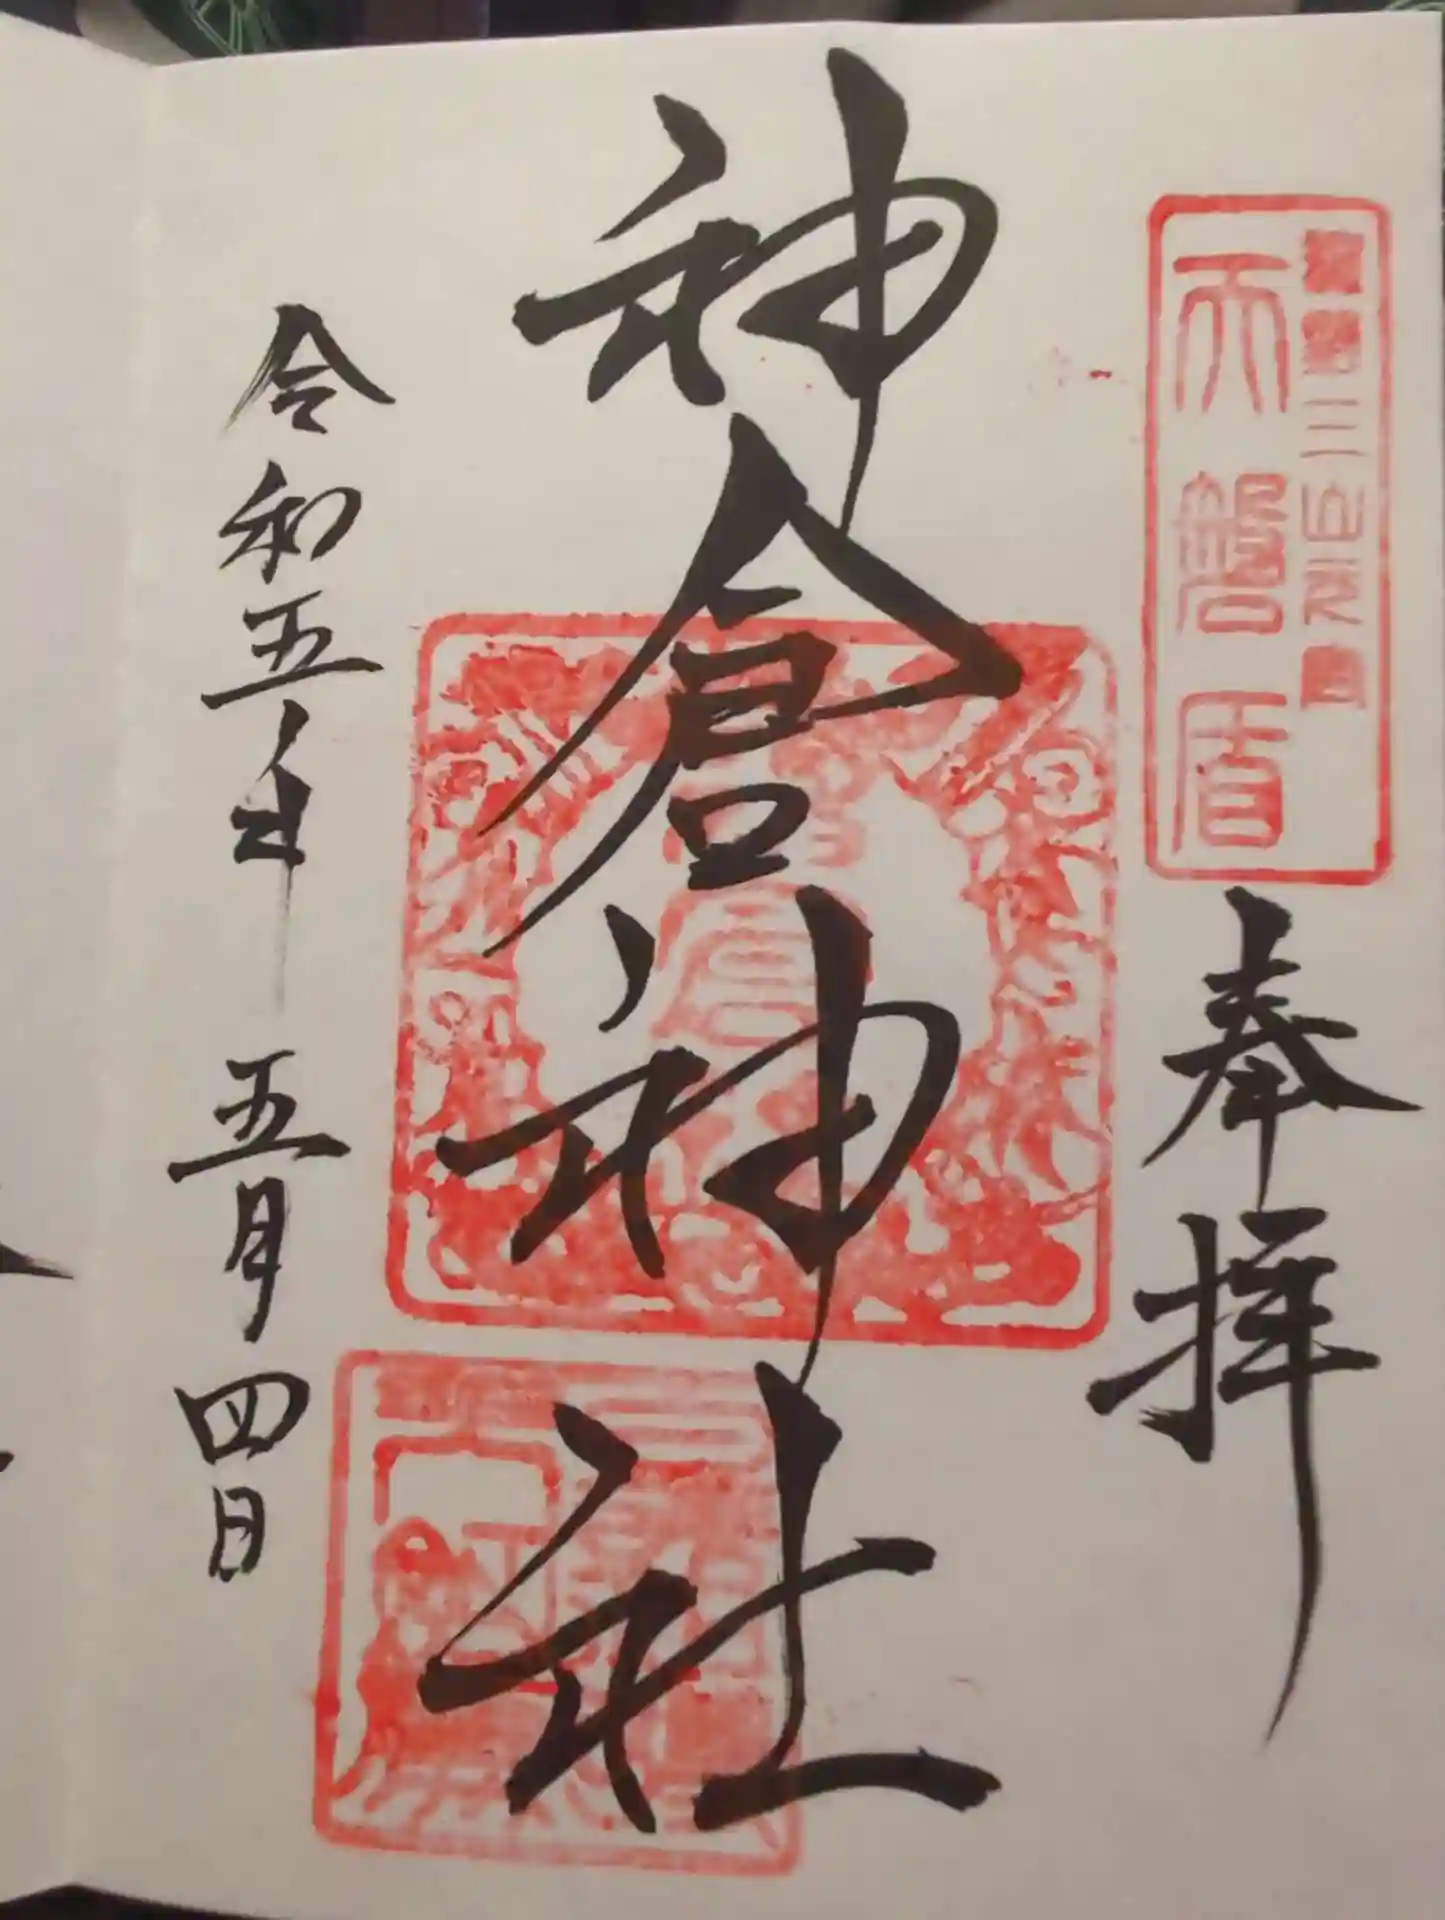 熊野三山元宮
天磐盾
奉拝
神倉神社
令和五年五月四日